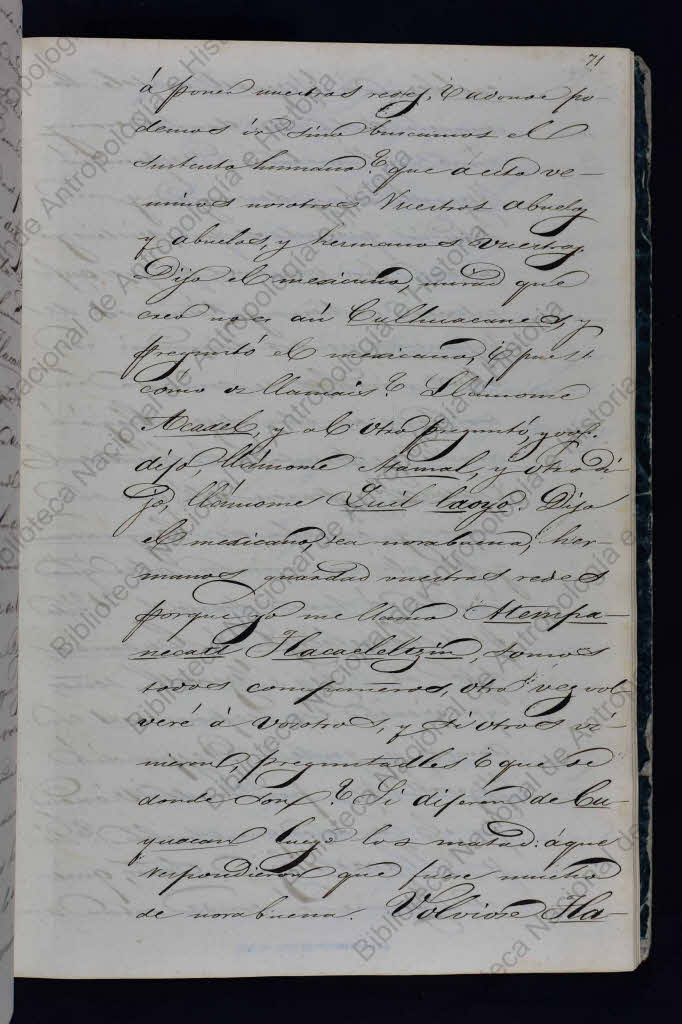 71
á poner nuestras redes, ¿adonde po-
demos ir sino buscamos el
sustento humano? que á esto ve-
nimos nosotros Vuestros abuelos
y abuelos, y hermanos vuestros.
Dijo el mexicano, mirad que
creo no es aú Culhuacanes, y
preguntó el mexicano, ¿pues
cómo os llamais? Llámome
Acaxel, y al otro preguntó, y
dijo, llámome Atamal, y otro di-
jo, llámome Quil láoyo. Dijo
el mexicano, sea norabuena, her-
manos, guardad vuestras redes
porque yo me llamo Atempa-
necatl Tlacaeleltzin, somos
todos compañeros, otra vez vol-
veré á vosotros, y si otros vi-
nieren, preguntadles ¿que se
donde son? Si dijeren de Cu-
yuacan luego los matad: á que
respondieron que fuese mucho
de norabuena. Volviose Tla-
Biblioteca Nacional de Antropología e Historia